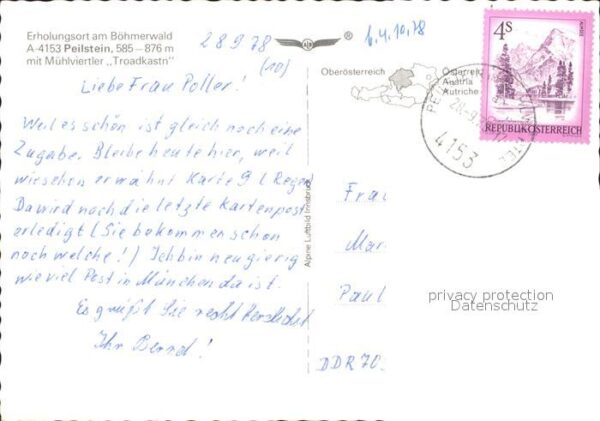 Erholungsort am Böhmerwald
A-4153 Peilstein, 585–876 m
mit Mühlviertler „Troadkastn"
28.9.78
(10)
b. 4.10.78
®
Liebe Frau Poller!
Weil es schön ist gleich noch eine
Zugabe. Bleibe heute hier, weil
wie schon erwähnt Karte 9 (Regen)
Da wird noch die letzte Kartenpost
erledigt (Sie bekommen schon
noch welche!) Ich bin neugierig
wie viel Post in München da ist.
Es grüßt Sie recht herzlichst
Ihr Bernd!
Alpine Luftbild Innsbruck
Oberösterreich
Österreich
Austria
Autriche
4153
4 S
REPUBLIK ÖSTERREICH
Frau
Mar
Paul
DDR 70
privacy protection
Datenschutz